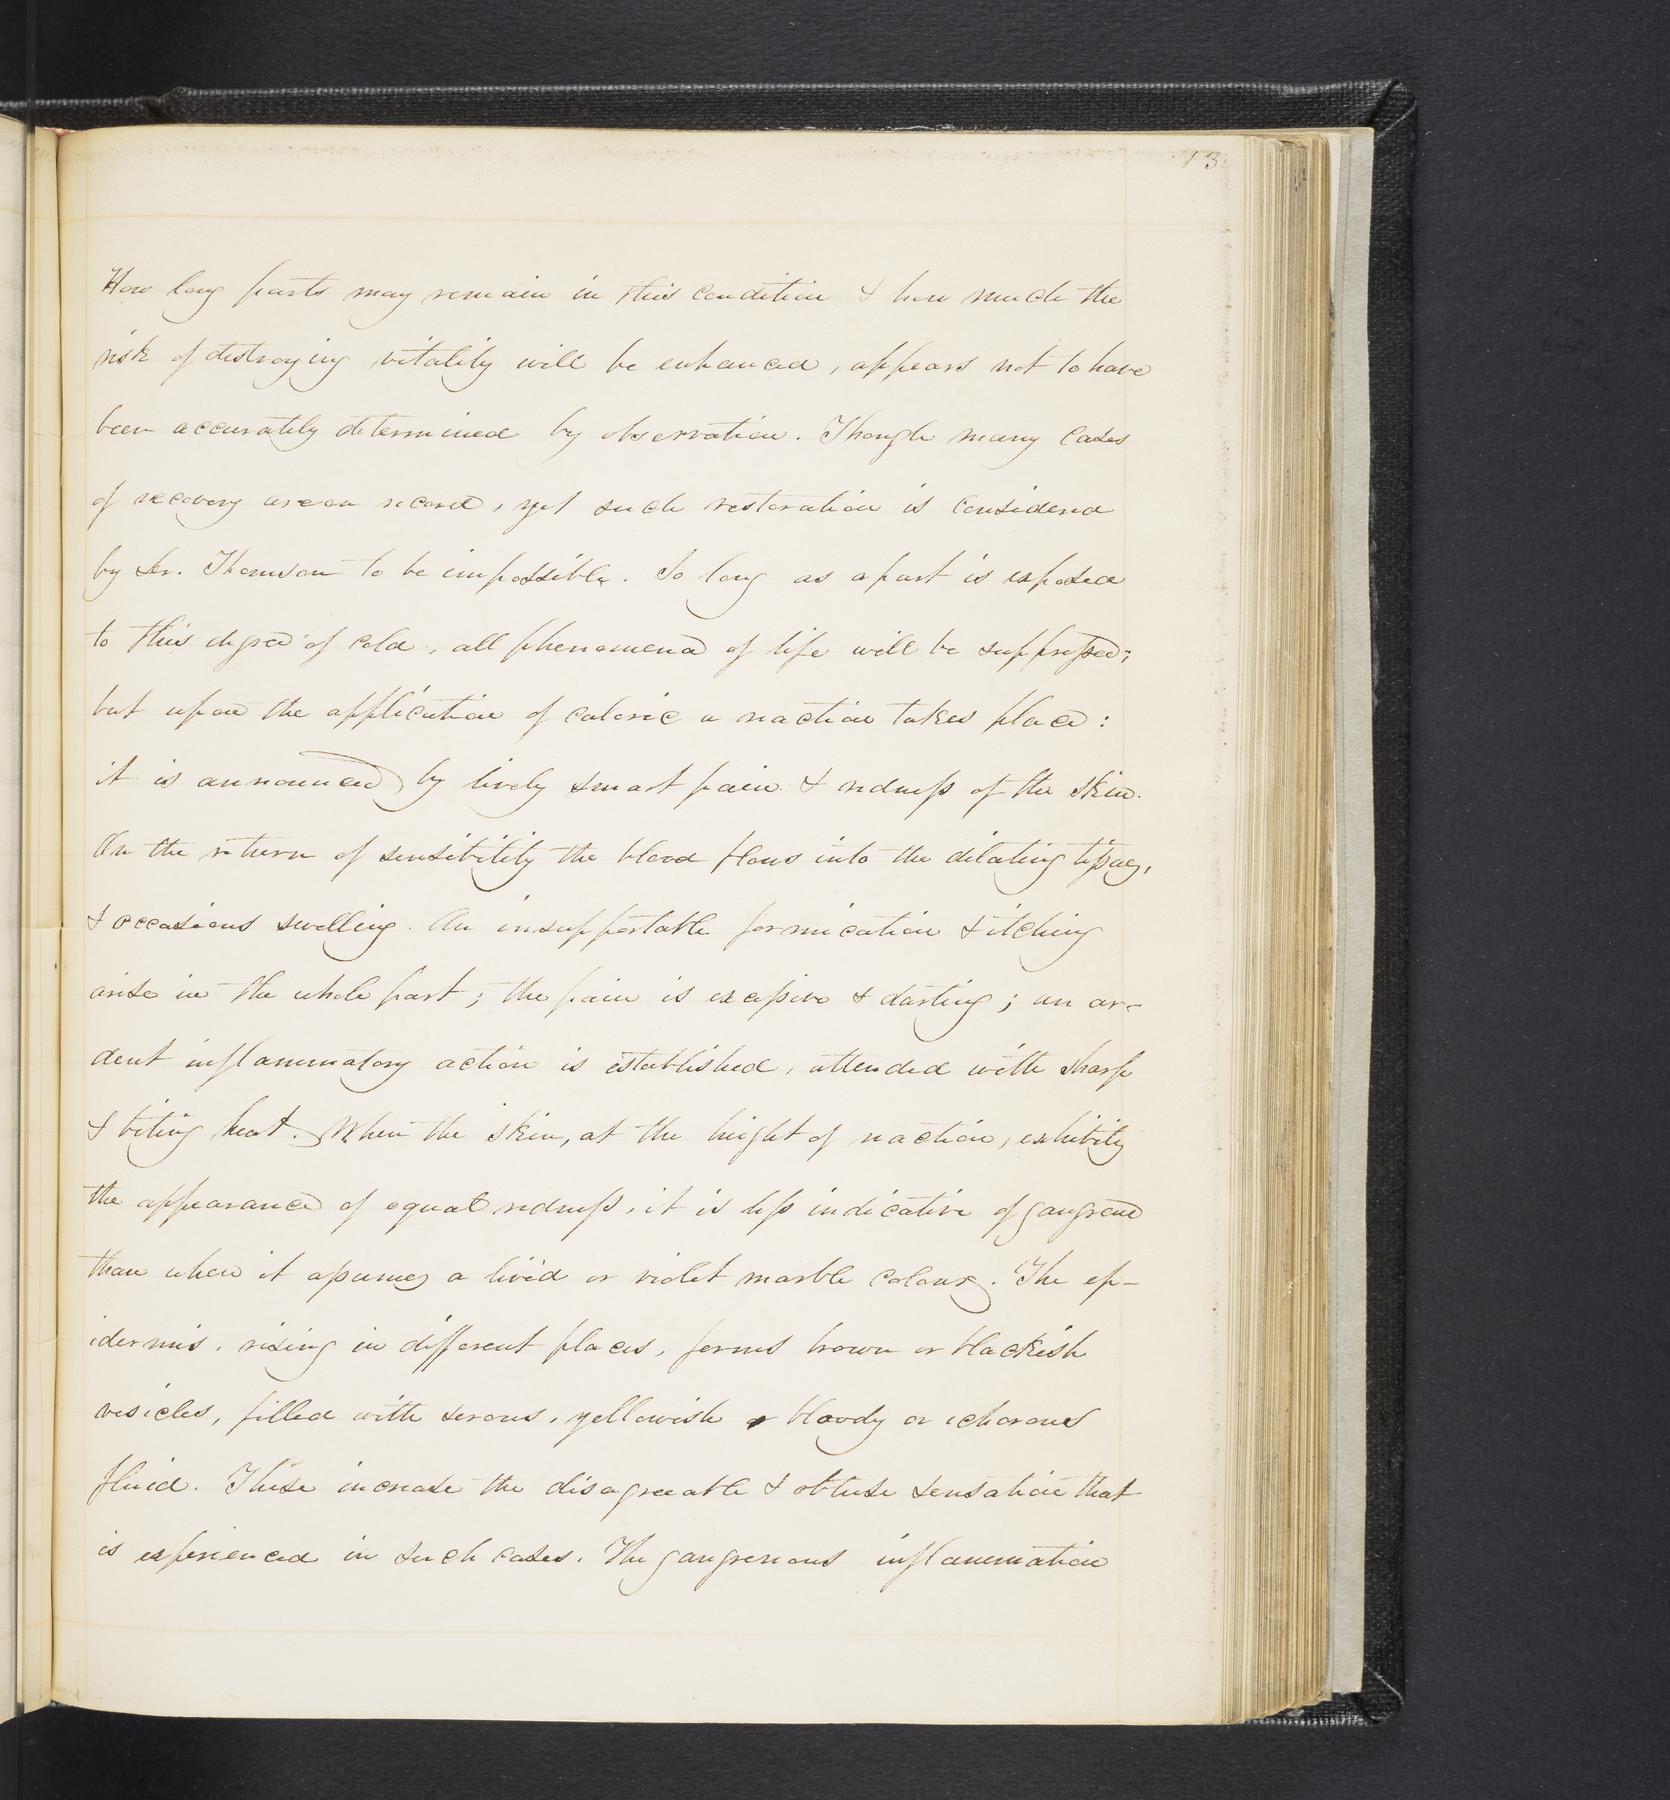 13
How long parts may remain in this condition & how much the
risk of destroying vitality will be enhanced, appears not to have
been accurately determined by observation. Though many cases
of recovery are on record, yet such restoration is considered
by Dr. Thomson to be impossible. So long as a part is exposed
to this degree of cold, all phenomena of life will be suppressed;
but upon the application of caloric a reaction takes place:
it is announced by lively smart pain & redness of the skin.
On the return of sensibility the blood flows into the dilating tissues,
& occasions swelling. An insupportable formication & itching
arise in the whole part; the pain is excessive & darting; an ar-
dent inflammatory action is established, attended with sharp
& biting heat. When the skin, at the height of reaction, exhibits
the appearance of equal redness, it is less indicative of gangrene
than when it assumes a livid or violet marble colour. The ep-
idermis, rising in different places, forms brown or blackish
vesicles, filled with serous, yellowish or bloody or ichorous
fluid. These increase the disagreeable & obtuse sensation that
is experienced in such cases. The gangrenous inflammation